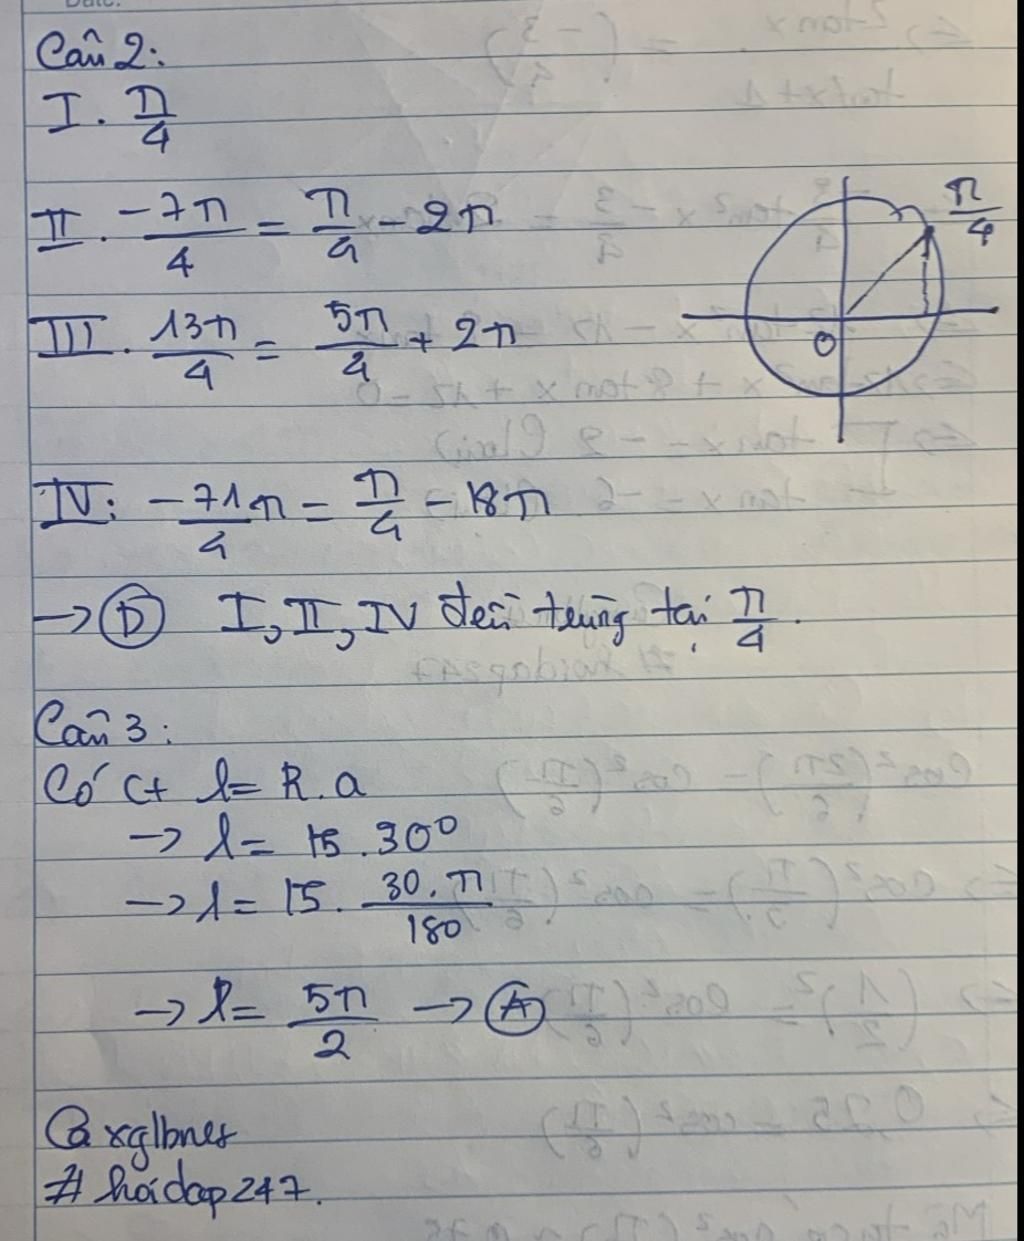 Câu 2:
I. π/4
II. -7π/4 = π/4 - 2π
π/4
III. 13π/4 = 5π/4 + 2π
O
IV: -71/4 π = π/4 - 18π
→ (D) I, II, IV đều trùng tại π/4.
Câu 3:
Có ct l = R.a
→ l = 15.30°
→ l = 15. 30.π/180
→ l = 5π/2 → (A)
@xglbnes
# hoidap247.